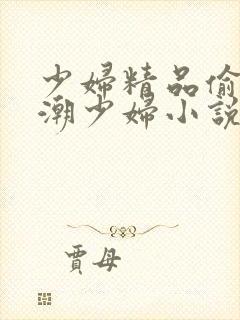 少婦精品偷
潮少婦小說
賈母